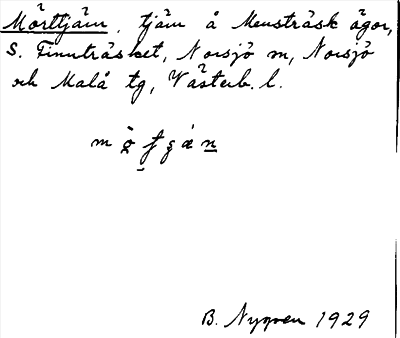 Mörttjärn, tjärn å Mensträsk ägor,
S. Finnträsket, Norsjö sn, Norsjö
och Malå tg, Västerb. l.
B. Nygren 1929